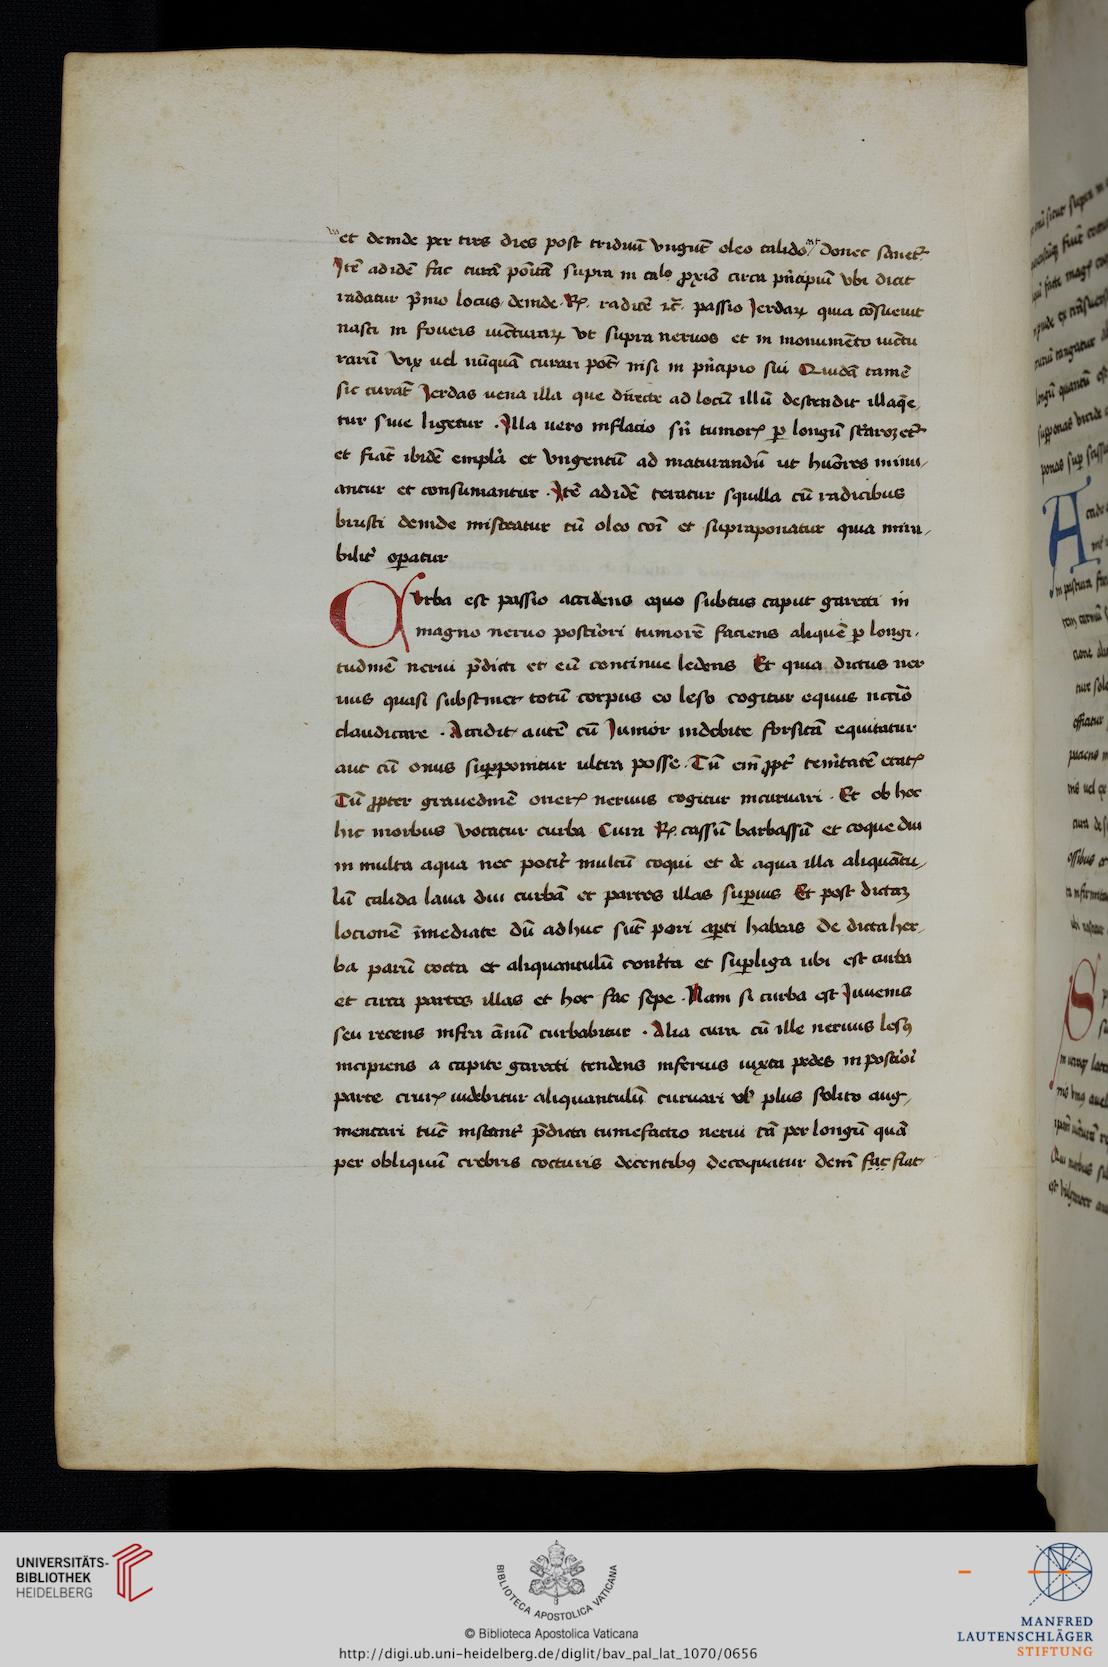 et deinde per tres dies post triduū vngūt oleo calido donec sanet᷑
Itē ad idē fac curā positā supra in calo ꝓxīs circa pn̄cipiū vbi dicit
radatur p̄mo locus deinde ℞. radicē ⁊c̄. passio Ierdaꝝ quia cōsueuit
nasci in foueis iūcturaꝝ vt supra neruos et in monumēto iūctu
rarū vix uel nūquā curari pōt nisi in pn̄cipio sui Quidā tamē
sic curāt Ierdas uena illa que directe ad locū illū descendit illaqē
tur siue ligetur . Illa uero inflacio sn̄ tumorꝫ ꝑ longū
et fiāt ibidē emplā et vngentū ad maturandū ut huōres minu
antur et consumantur . Itē ad idē teratur squilla cū radicibus
brusci deinde misceatur cū oleo coī et supraponatur quia mira
bilit᷑ oꝑatur
Curba est passio accidens equo subtus caput garecti in
magno neruo posteriori tumorē faciens aliquē ꝑ longi
tudinē nerui p̄dicti et eū continue ledens Et quia dictus ner
uus quasi substinet totū corpus eo leso cogitur equus nccīo
claudicare . Accidit autē cū Iunior indebite forsitā equitatur
aut cū onus suꝑponitur ultra posse . Tū em̄ ꝓpt᷑ tenīтatē etatꝫ
Tū ꝓpter grauedinē onerꝫ neruus cogitur incuruari . Et ob hoc
hic morbus vocatur curba Cura ℞. tassū barbassū et coque diu
in multa aqua nec potīt multū coqui et de aqua illa aliquātu
lū calida laua diu curbā et partes illas suꝑius Et post dictaꝫ
locionē īmediate dū adhuc sūt pori aꝑti habeas de dicta her
ba parū cocta et aliquantulū et suꝑliga ubi est curba
et circa partes illas et hoc fac sepe . Nam si curba est Iuuenis
seu recens infra ānū curbabitur . Alia cura cū ille neruus lesꝰ
incipiens a capite garecti tendens inferius iuxta pedes in posterīori
parte crurꝫ uidebitur aliquantulū curuari vl̓ plus solito aug
mentari tūc instant᷑ p̄dicta tumefactio nerui tā per longū quā
per obliquū crebris cocturis decentibꝰ decoquatur deīn fac fiat
UNIVERSITÄTS-
BIBLIOTHEK
HEIDELBERG
BIBLIOTECA APOSTOLICA VATICANA
© Biblioteca Apostolica Vaticana
http://digi.ub.uni-heidelberg.de/diglit/bav_pal_lat_1070/0656
MANFRED
LAUTENSCHLÄGER
STIFTUNG